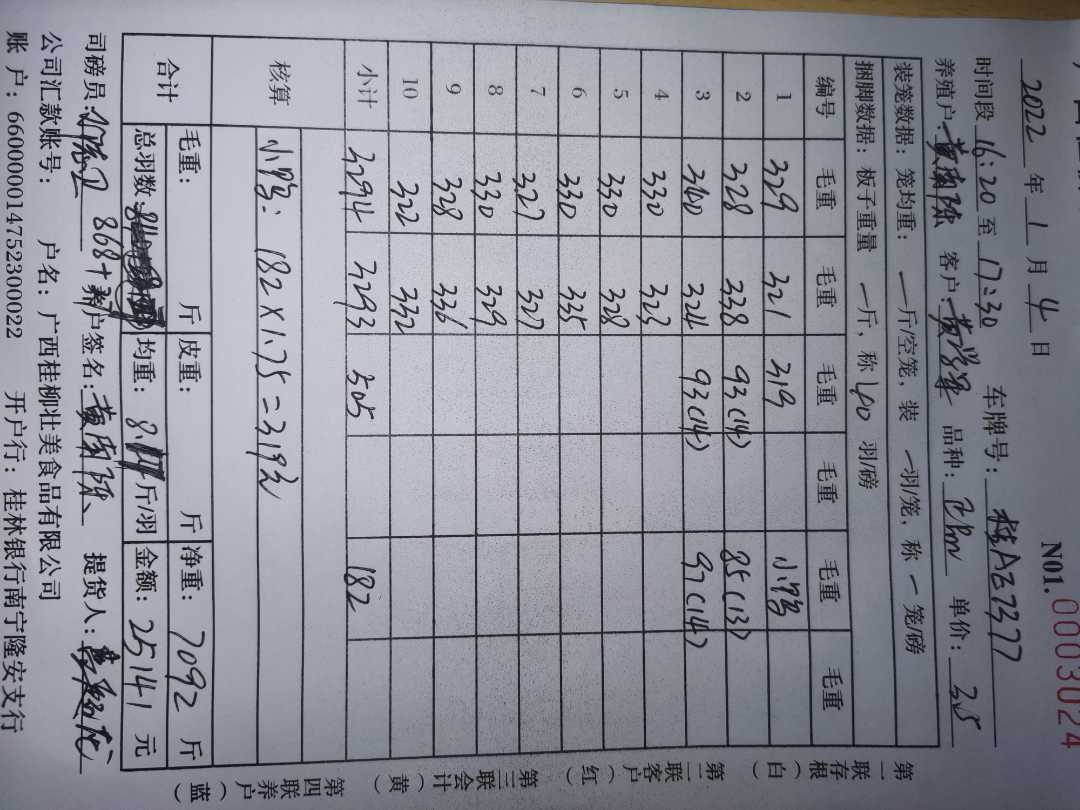 N01. 0003024
2022年1月4日 车牌号:桂AZ7377
时间段16:20至17:30
养殖户 客户 品种: 单价:3.5
装笼数据:笼均重:一斤/空笼,装一羽/笼,称一笼/磅
捆脚数据:板子重量一斤,称40羽/磅
编号 毛重 毛重 毛重 毛重 毛重 毛重
1 329 321 319 小鸡
2 328 338 93(14) 85(13)
3 340 324 93(14) 97(14)
4 330 323
5 330 328
6 330 335
7 327 327
8 330 329
9 328 336
10 322 332
小计 3294 3293 505 182
核算 小鸡:182×1.75=319元
合计 毛重: 斤 皮重: 斤 净重:7092斤
总羽数: 均重: 斤/羽 金额:25141元
868+
司磅员: 养户签名: 提货人:
公司汇款账号: 户名:广西桂柳壮美食品有限公司
账户:660000014752300022 开户行:桂林银行南宁隆安支行
第一联存根(白)
第二联客户(红)
第三联会计(黄)
第四联养户(蓝)